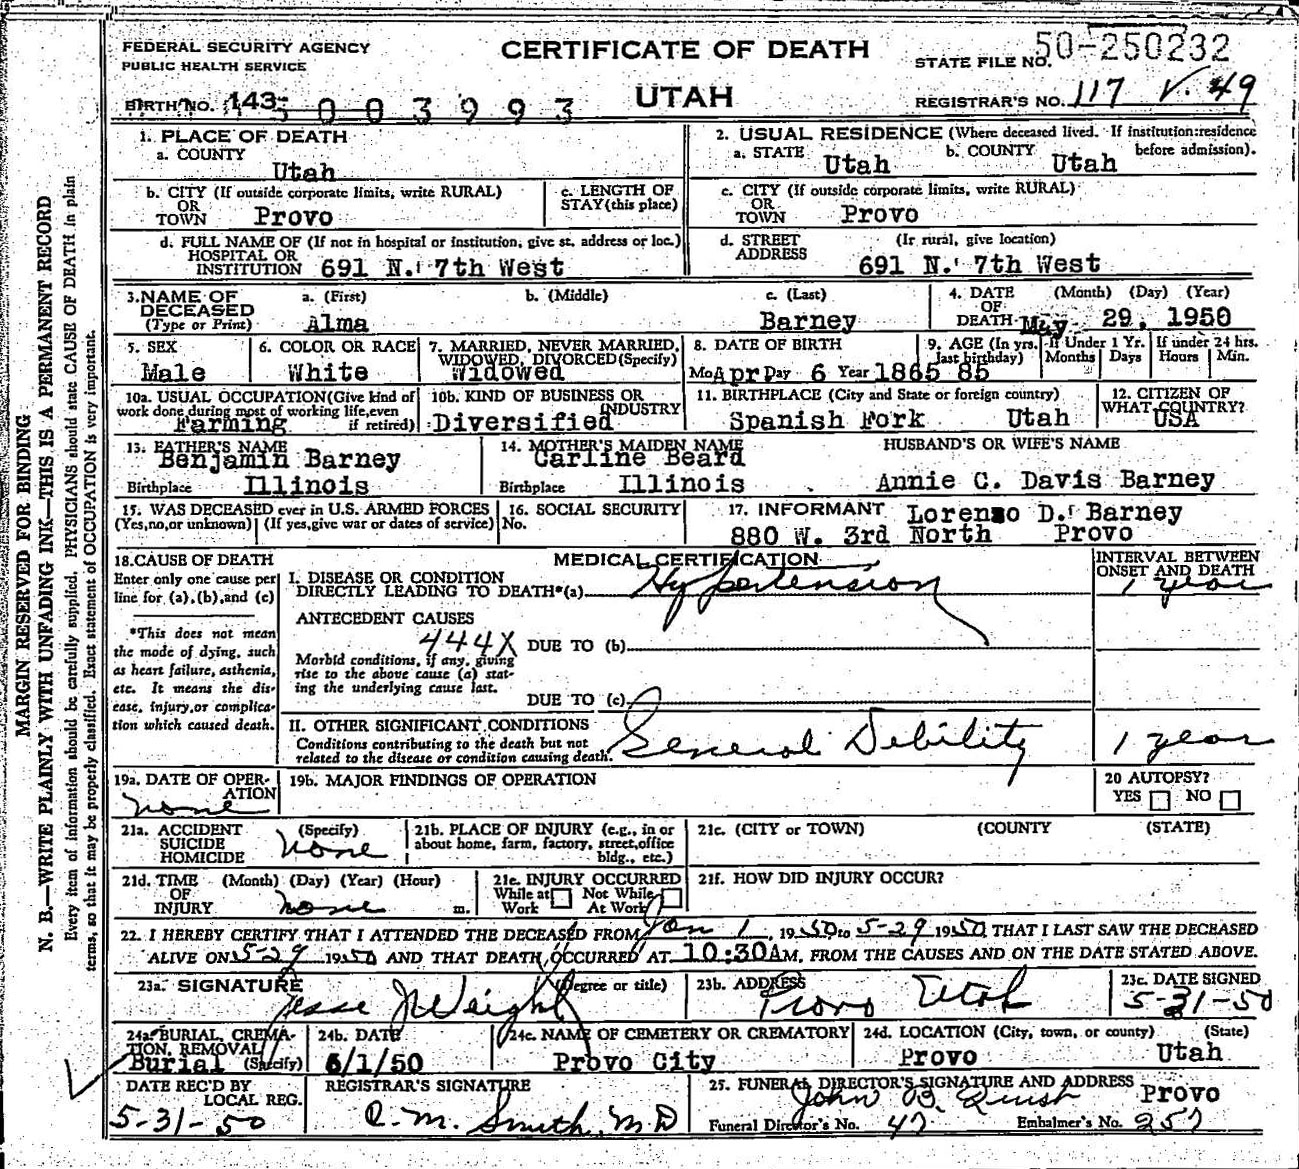 FEDERAL SECURITY AGENCY
PUBLIC HEALTH SERVICE
CERTIFICATE OF DEATH
UTAH
STATE FILE NO. 50-250232
REGISTRAR'S NO. 117 V. 49
BIRTH NO. 143- 5003993
1. PLACE OF DEATH
a. COUNTY
Utah
2. USUAL RESIDENCE (Where deceased lived. If institution:residence before admission).
a. STATE Utah b. COUNTY Utah
b. CITY (If outside corporate limits, write RURAL)
OR
TOWN Provo
c. LENGTH OF
STAY(this place)
c. CITY (If outside corporate limits, write RURAL)
OR
TOWN Provo
d. FULL NAME OF (If not in hospital or institution, give st. address or loc.)
HOSPITAL OR
INSTITUTION 691 N. 7th West
d. STREET (Ir rural, give location)
ADDRESS
691 N. 7th West
3. NAME OF DECEASED
(Type or Print)
a. (First) b. (Middle) c. (Last)
Alma Barney
4. DATE (Month) (Day) (Year)
OF
DEATH May 29, 1950
5. SEX
Male
6. COLOR OR RACE
White
7. MARRIED, NEVER MARRIED,
WIDOWED, DIVORCED(Specify)
Widowed
8. DATE OF BIRTH
Mo Apr Day 6 Year 1865
9. AGE (In yrs. last birthday)
85
If Under 1 Yr.
Months Days
If under 24 hrs.
Hours Min.
10a. USUAL OCCUPATION(Give kind of
work done during most of working life, even
if retired)
Farming
10b. KIND OF BUSINESS OR
INDUSTRY
Diversified
11. BIRTHPLACE (City and State or foreign country)
Spanish Fork Utah
12. CITIZEN OF
WHAT COUNTRY?
USA
13. FATHER'S NAME
Benjamin Barney
Birthplace Illinois
14. MOTHER'S MAIDEN NAME
Carline Beard
Birthplace Illinois
HUSBAND'S OR WIFE'S NAME
Annie C. Davis Barney
15. WAS DECEASED ever in U.S. ARMED FORCES
(Yes,no,or unknown) (If yes,give war or dates of service)
16. SOCIAL SECURITY
No.
17. INFORMANT Lorenzo D. Barney
880 W. 3rd North Provo
18. CAUSE OF DEATH
Enter only one cause per
line for (a),(b),and (c)
*This does not mean
the mode of dying, such
as heart failure, asthenia,
etc. It means the dis-
ease, injury,or complica-
tion which caused death.
MEDICAL CERTIFICATION
I. DISEASE OR CONDITION
DIRECTLY LEADING TO DEATH*(a) Hypertension
ANTECEDENT CAUSES
444X DUE TO (b)
Morbid conditions, if any, giving
rise to the above cause (a) stat-
ing the underlying cause last.
DUE TO (c)
II. OTHER SIGNIFICANT CONDITIONS
Conditions contributing to the death but not
related to the disease or condition causing death.
General Debility
INTERVAL BETWEEN
ONSET AND DEATH
1 year
1 year
19a. DATE OF OPER-
ATION
none
19b. MAJOR FINDINGS OF OPERATION
20 AUTOPSY?
YES NO
21a. ACCIDENT (Specify)
SUICIDE
HOMICIDE
None
21b. PLACE OF INJURY (e.g., in or
about home, farm, factory, street,office
bldg., etc.)
21c. (CITY or TOWN) (COUNTY (STATE)
21d. TIME (Month) (Day) (Year) (Hour)
OF
INJURY none m.
21e. INJURY OCCURRED
While at Work Not While At Work
21f. HOW DID INJURY OCCUR?
22. I HEREBY CERTIFY THAT I ATTENDED THE DECEASED FROM Jan 1, 1950 to 5-29 1950, THAT I LAST SAW THE DECEASED
ALIVE ON 5-29 1950 AND THAT DEATH OCCURRED AT 10:30AM, FROM THE CAUSES AND ON THE DATE STATED ABOVE.
23a. SIGNATURE (Degree or title)
Jesse J Weight
23b. ADDRESS
Provo Utah
23c. DATE SIGNED
5-31-50
24a. BURIAL, CREMA-
TION, REMOVAL
Burial (Specify)
24b. DATE
6/1/50
24c. NAME OF CEMETERY OR CREMATORY
Provo City
24d. LOCATION (City, town, or county) (State)
Provo Utah
DATE REC'D BY
LOCAL REG.
5-31-50
REGISTRAR'S SIGNATURE
C. M. Smith, M D
25. FUNERAL DIRECTOR'S SIGNATURE AND ADDRESS
John B. Provo
Funeral Director's No. 47 Embalmer's No. 257
MARGIN RESERVED FOR BINDING
N. B.—WRITE PLAINLY WITH UNFADING INK—THIS IS A PERMANENT RECORD
Every item of information should be carefully supplied. PHYSICIANS should state CAUSE OF DEATH in plain
terms, so that it may be properly classified. Exact statement of OCCUPATION is very important.